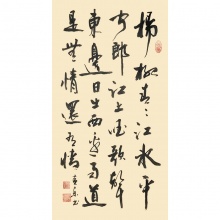 楊柳青々江水平
聞郎江上唱歌聲
東邊日出西邊雨道
是無情還有情